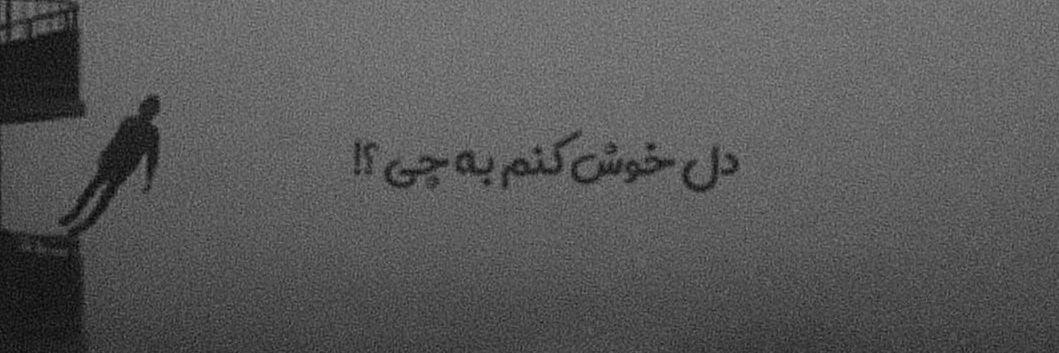 دل خوش کنم به چی ؟!